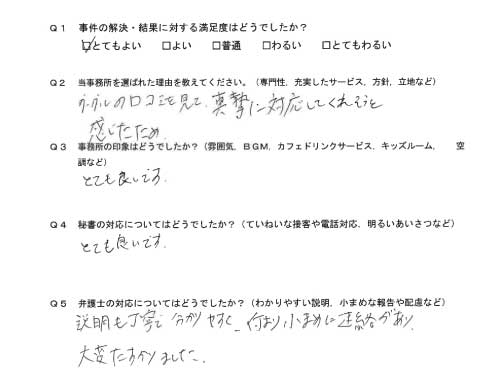 Q1 事件の解決・結果に対する満足度はどうでしたか?
☑とてもよい □よい □普通 □わるい □とてもわるい
Q2 当事務所を選ばれた理由を教えてください。(専門性、充実したサービス、方針、立地など)
グーグルの口コミを見て、真摯に対応してくれそうと
感じたため。
Q3 事務所の印象はどうでしたか?(雰囲気、BGM、カフェドリンクサービス、キッズルーム、 空
調など)
とても良いです。
Q4 秘書の対応についてはどうでしたか?(ていねいな接客や電話対応、明るいあいさつなど)
とても良いです。
Q5 弁護士の対応についてはどうでしたか?(わかりやすい説明、小まめな報告や配慮など)
説明も丁寧で分かりやすく、何より小まめに連絡があり、
大変たすかりました。